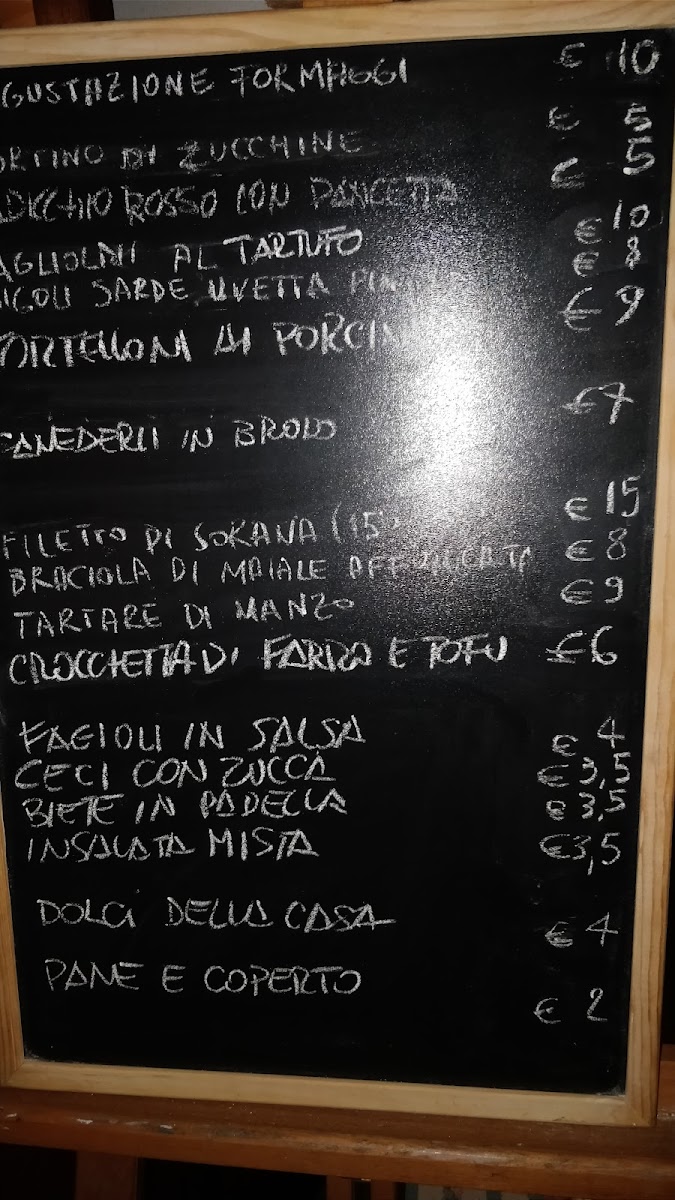 GUSTAZIONE FORMAGGI € 10
ORTINO DI ZUCCHINE € 5
ADICCHIO ROSSO CON PANCETTA € 5
AGLIOLINI AL TARTUFO € 10
IGOLI SARDE UVETTA € 8
ORTELLONI DI PORCINI € 9
CANEDERLI IN BRODO € 7
FILETTO DI SORANA (15) € 15
BRACIOLA DI MAIALE AFFUMICATA € 8
TARTARE DI MANZO € 9
CROCCHETTA DI FARRO E TOFU € 6
FAGIOLI IN SALSA € 4
CECI CON ZUCCA € 3,5
BIETE IN PADELLA € 3,5
INSALATA MISTA € 3,5
DOLCI DELLA CASA € 4
PANE E COPERTO € 2